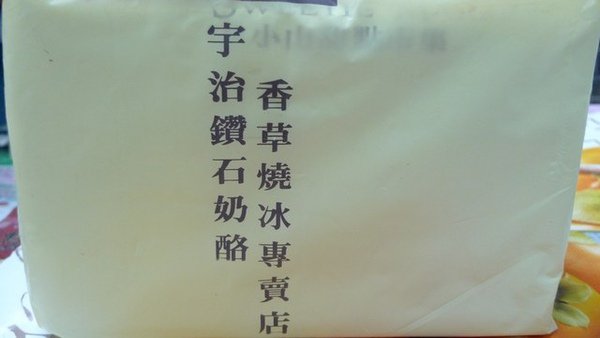 香草燒冰專賣店
宇治鑽石奶酪